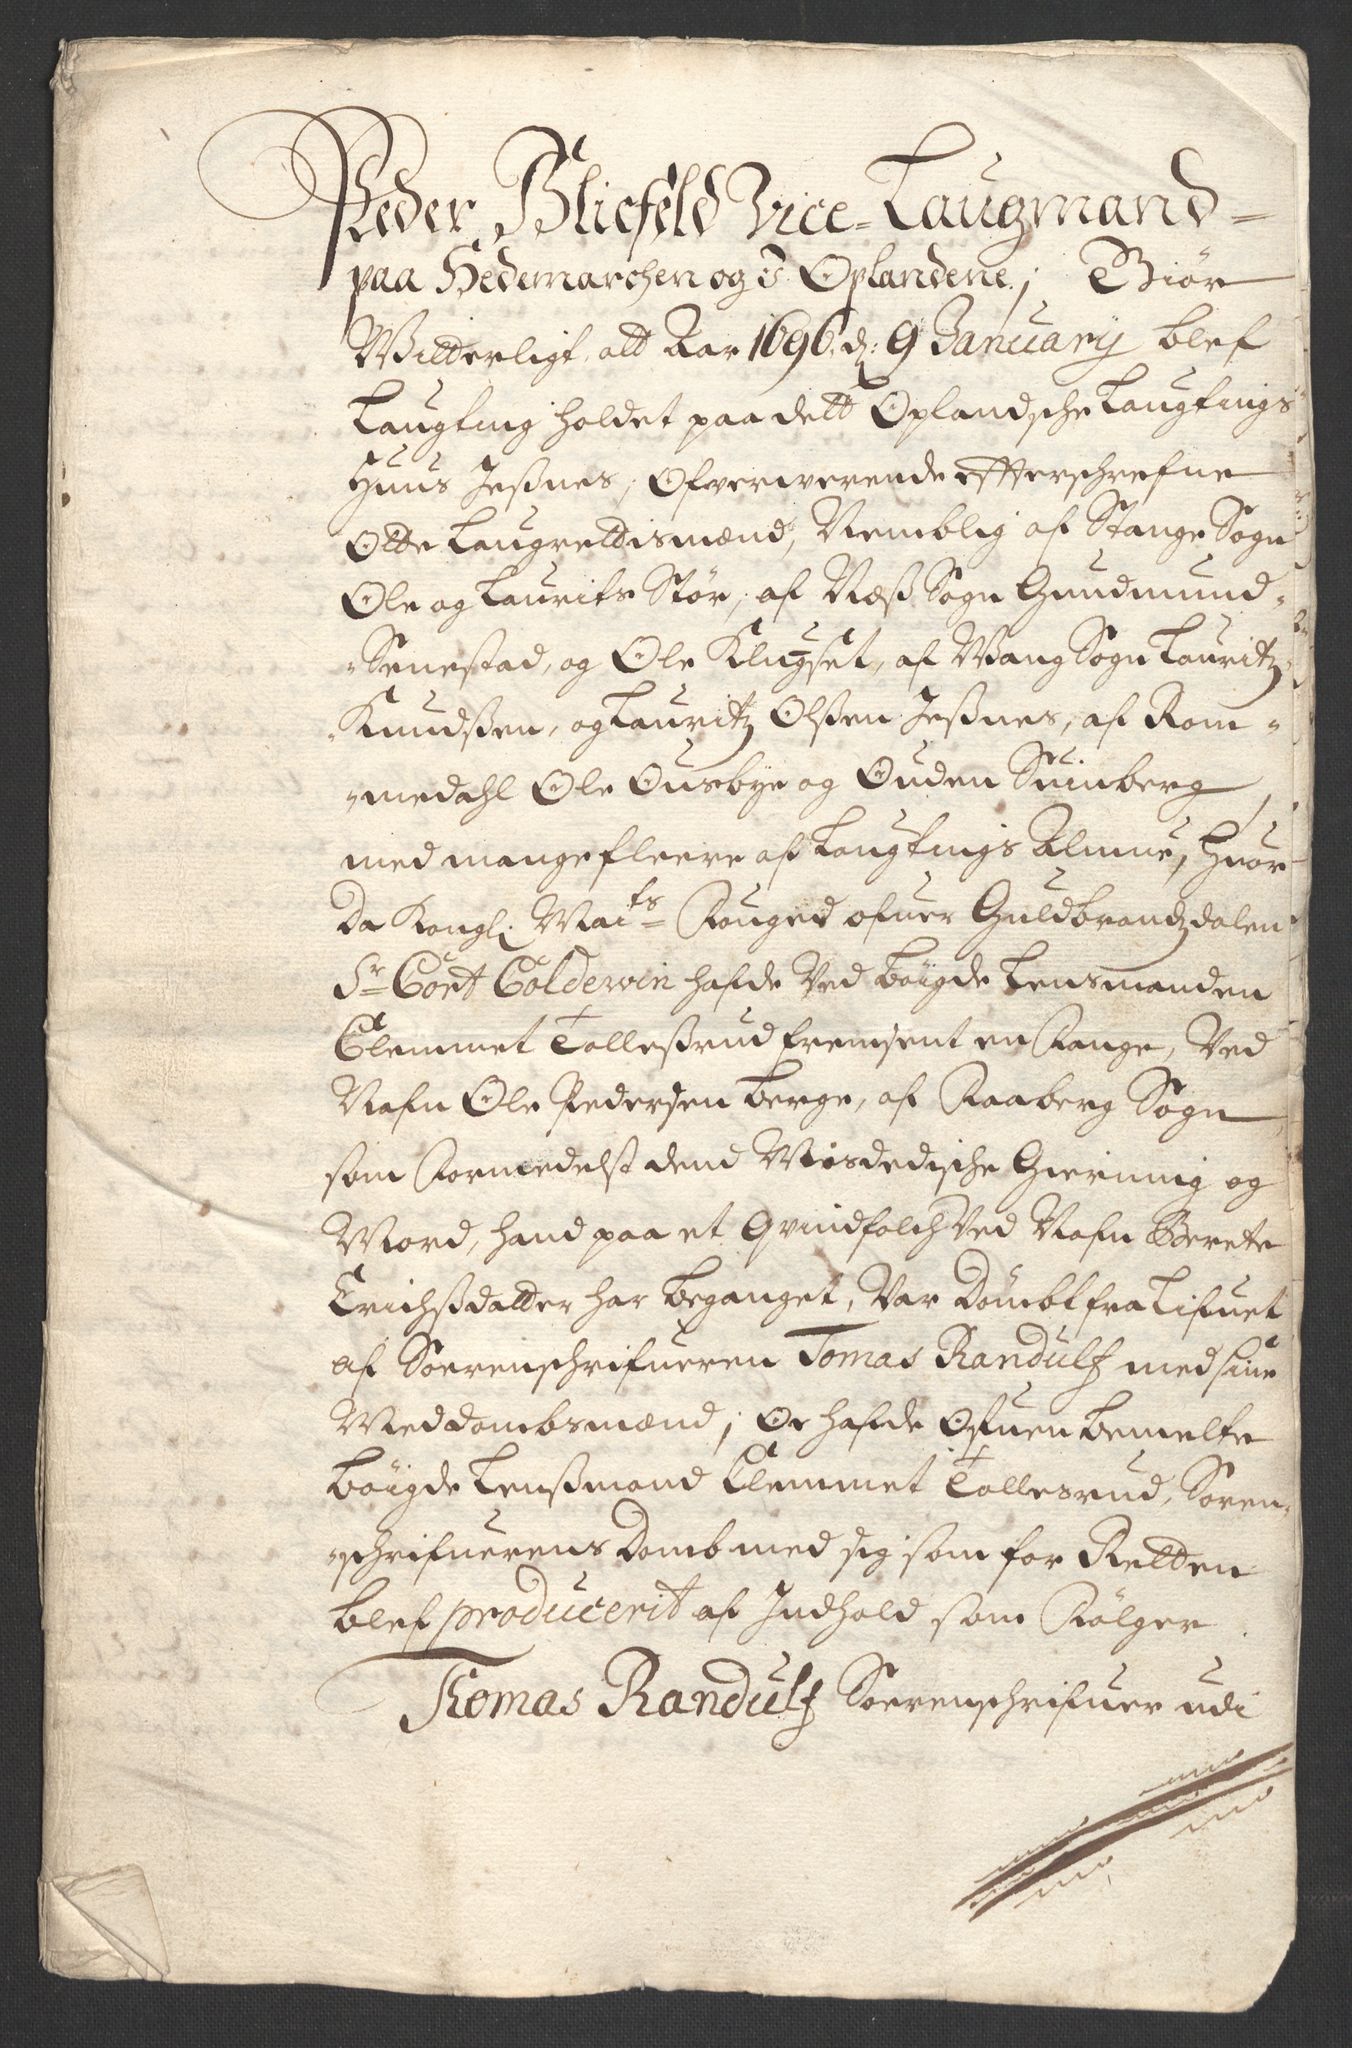 Peder Bliefeld Vice-Laugmand-
paa Hedemarchen og i Oplandene; Giør
Witterligt, att Aar 1696. d: 9 January blef
Laugting holdet paa dett Oplandsche Laugtings
Huus Jeßnes, Ofververende effterschrefne
Otte Laugrettismænd, Nemblig af Stange Sogn
Ole og Laurits Stør, af Næß Sogn Gundmund-
-Senestad, og Ole Klugset, af Wang Sogn Lauritz
Knudsßen, og Lauritz Olßen Jeßnes, af Rom-
-medahl Ole Ousbye og Ouden Suinberg
med mange fleere af Laugtings Almue, Huor
da Kongl: Maits Fouged ofuer Guldbrandzdalen
Sr Cort Coldewin hafde ved bøigde Lensmanden
Clemmet Tolleßrud fremsent en Fange, ved
Nafn Ole Pedersen Berge, af Faaberg Sogn
som formedelst dend Misdedische Gierning og
Mord, hand paa et Qvindfolch ved Nafn Berete
Erichßdatter har beganget, var dømbt fra Lifuet
af Sorenschrifueren Tomas Randulf med sine
Meddombsmænd; Oc hafde Ofuenbemelte
bøigde Lensßmand Clemmet Tollesrud, Soren-
-schrifuerens Domb med sig som for Retten
blef producerit af Indhold som følger
Thomas Randulf Sorenschrifuer udi